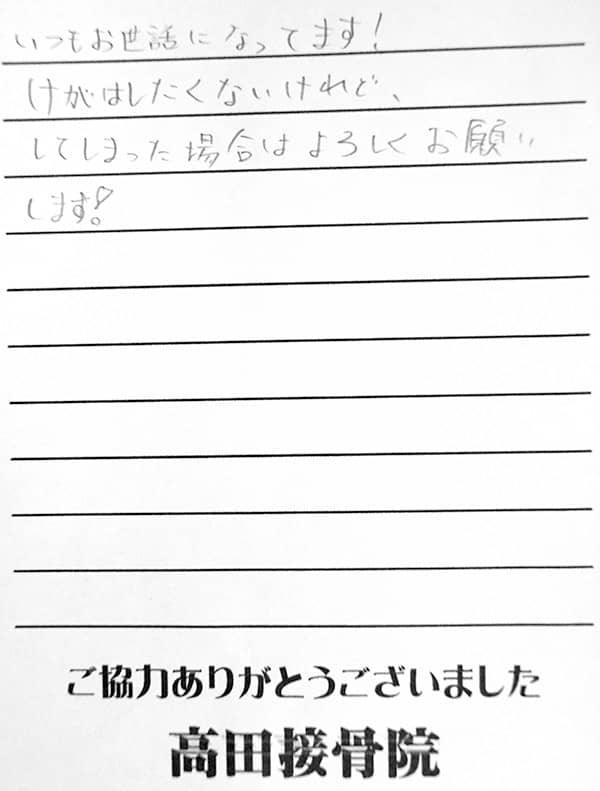 いつもお世話になってます!
けがはしたくないけれど、
してしまった場合はよろしくお願い
します!
ご協力ありがとうございました
高田接骨院